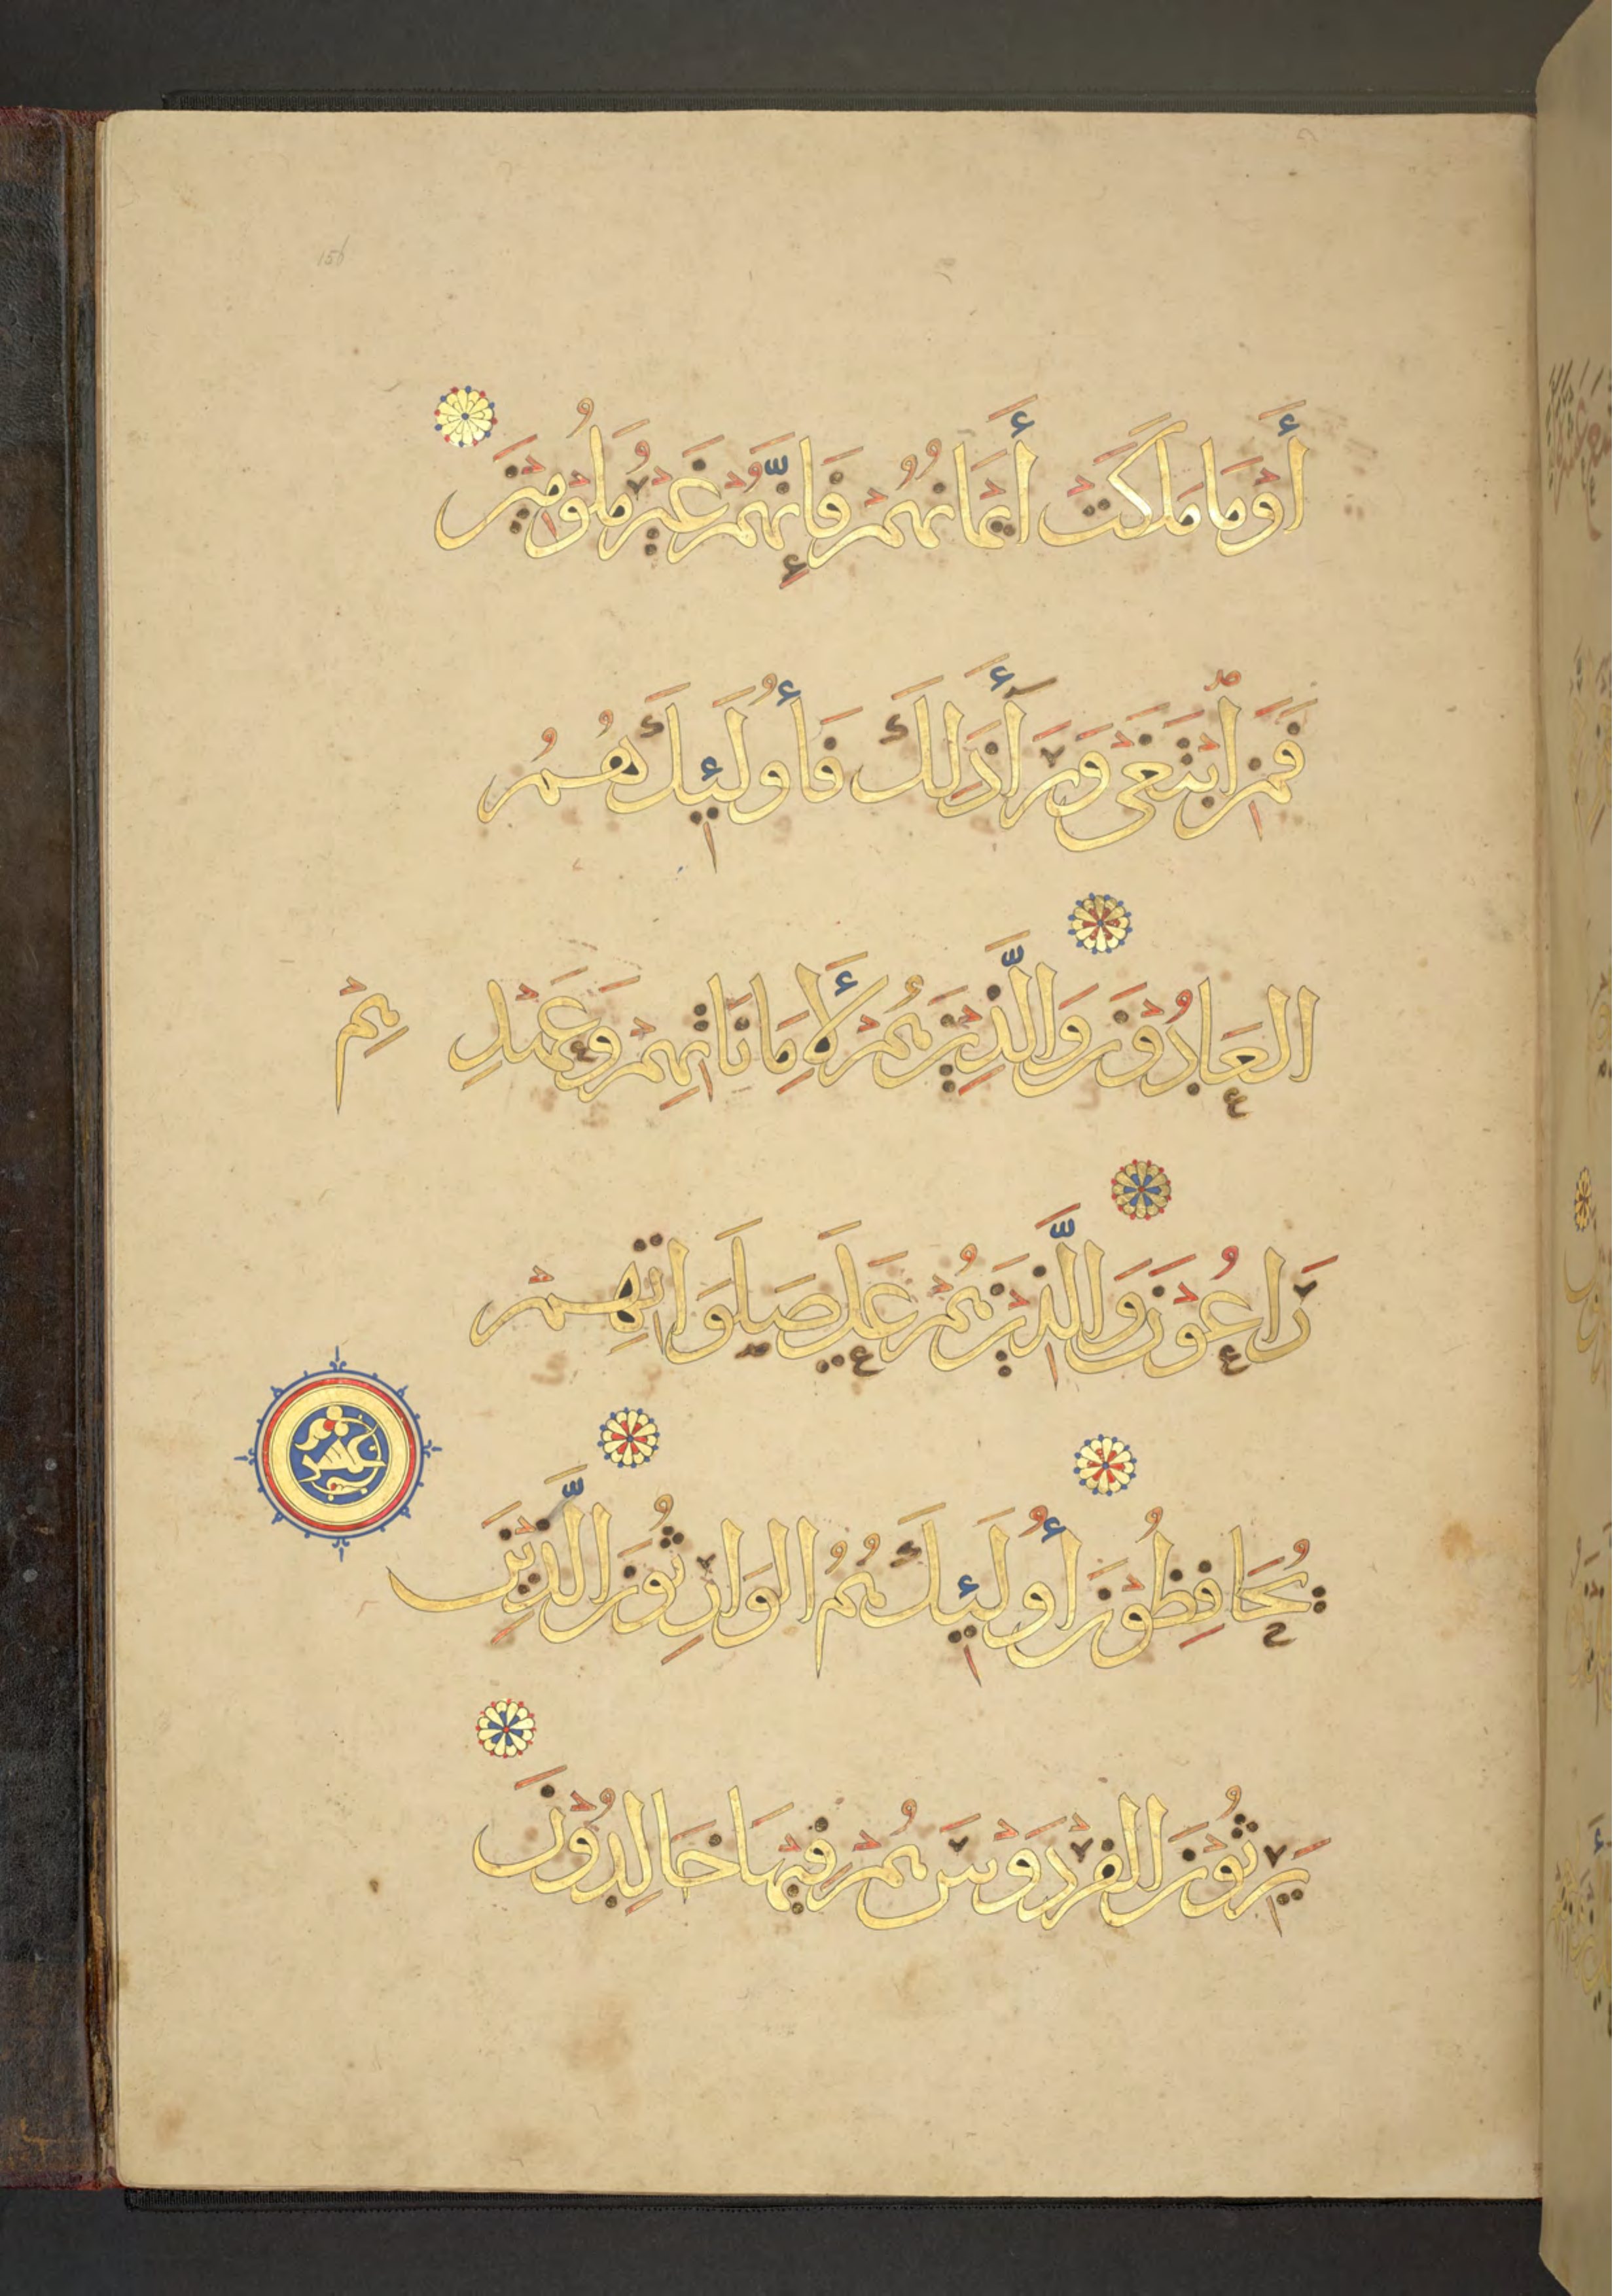 أَوْ مَا مَلَكَتْ أَيْمَانُهُمْ فَإِنَّهُمْ غَيْرُ مَلُوْمِيْنَ
فَمَنِ ابْتَغَى وَرَاءَ ذَلِكَ فَأُولَئِكَ هُمُ
العَادُوْنَ وَالَّذِيْنَ هُمْ لِأَمَانَاتِهِمْ وَعَهْدِهِمْ
رَاعُوْنَ وَالَّذِيْنَ هُمْ عَلَى صَلَوَاتِهِمْ
يُحَافِظُوْنَ أُولَئِكَ هُمُ الوَارِثُوْنَ الَّذِيْنَ
عشر
يَرِثُوْنَ الفِرْدَوْسَ هُمْ فِيْهَا خَالِدُوْنَ